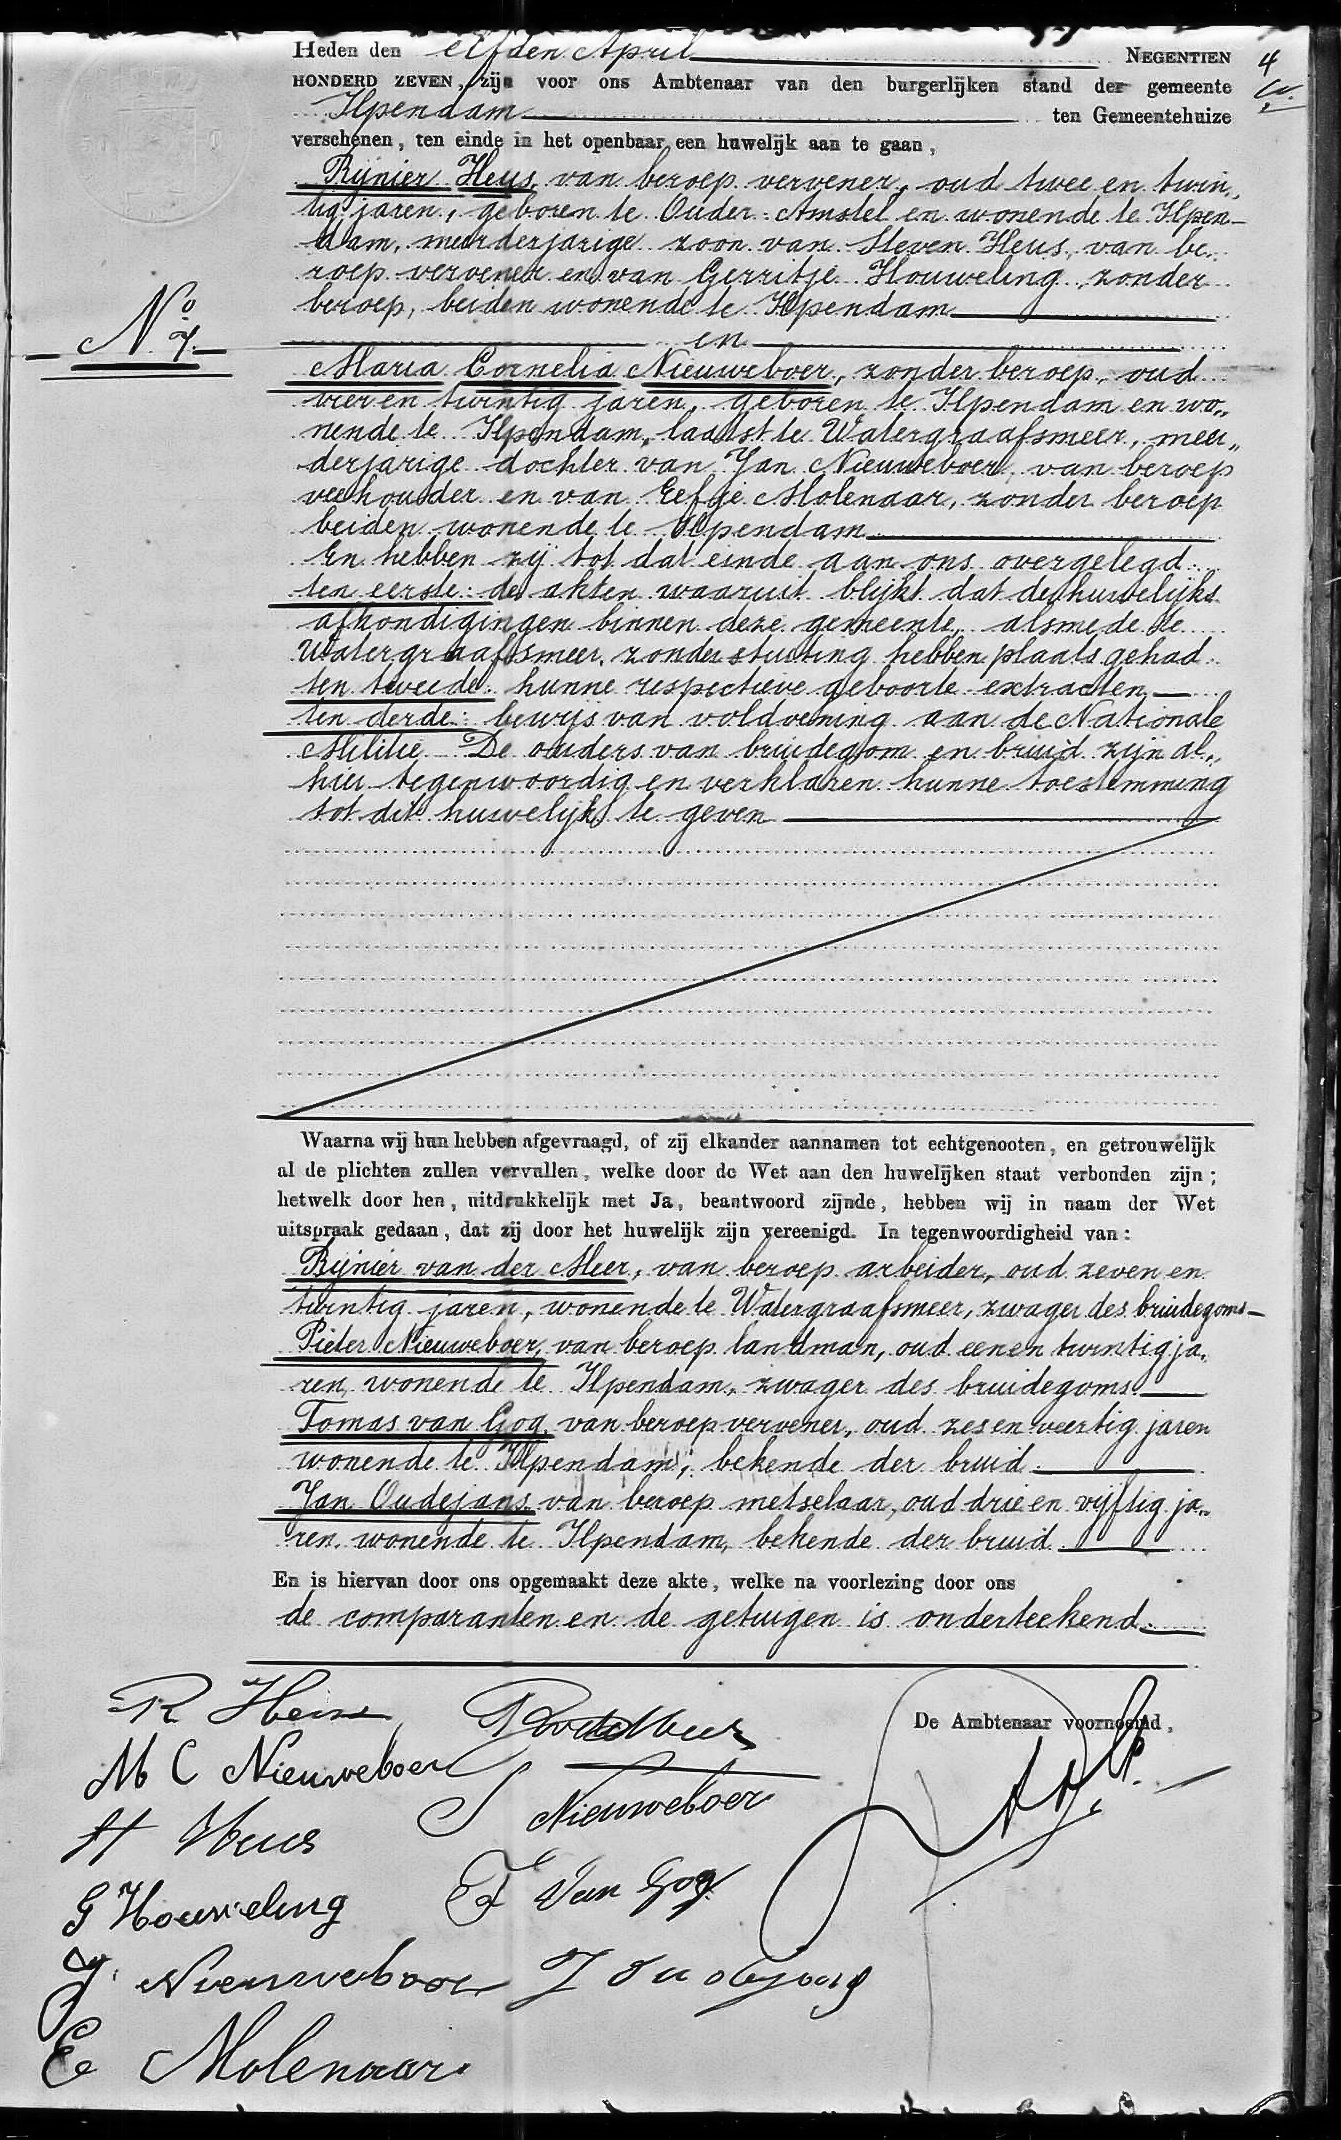 Heden den elfden April NEGENTIEN 4
HONDERD ZEVEN, zijn voor ons Ambtenaar van den burgerlijken stand der gemeente
Ilpendam ten Gemeentehuize
verschenen, ten einde in het openbaar een huwelijk aan te gaan,
Rijnier Heus, van beroep vervener, oud twee en twin„
tig jaren, geboren te Ouder-Amstel en wonende te Ilpen-
dam, meerderjarige zoon van Steven Heus, van be„
roep vervener en van Gerritje Houweling, zonder
beroep, beiden wonende te Ilpendam
No 7.
en
Maria Cornelia Nieuweboer, zonder beroep, oud
vier en twintig jaren, geboren te Ilpendam en wo„
nende te Ilpendam, laatst te Watergraafsmeer, meer„
derjarige dochter van Jan Nieuweboer, van beroep
veehouder en van Eefje Molenaar, zonder beroep
beiden wonende te Ilpendam
En hebben zij tot dat einde aan ons overgelegd
ten eerste: de akten waaruit blijkt dat de huwelijks
afkondigingen binnen deze gemeente, alsmede te
Watergraafsmeer, zonder stuiting hebben plaats gehad
ten tweede: hunne respectieve geboorte extracten
ten derde: bewijs van voldoening aan de Nationale
Militie De ouders van bruidegom en bruid zijn al„
hier tegenwoordig en verklaren hunne toestemming
tot dit huwelijk te geven
Waarna wij hun hebben afgevraagd, of zij elkander aannamen tot echtgenooten, en getrouwelijk
al de plichten zullen vervullen, welke door de Wet aan den huwelijken staat verbonden zijn;
hetwelk door hen, uitdrukkelijk met Ja, beantwoord zijnde, hebben wij in naam der Wet
uitspraak gedaan, dat zij door het huwelijk zijn vereenigd. In tegenwoordigheid van:
Rijnier van der Meer, van beroep arbeider, oud zeven en
twintig jaren, wonende te Watergraafsmeer, zwager des bruidegoms
Pieter Nieuweboer, van beroep landman, oud een en twintig ja„
ren, wonende te Ilpendam, zwager des bruidegoms
Tomas van Gog, van beroep vervener, oud zes en veertig jaren
wonende te Ilpendam, bekende der bruid
Jan Oudejans van beroep metselaar, oud drie en vijftig ja„
ren, wonende te Ilpendam, bekende der bruid
En is hiervan door ons opgemaakt deze akte, welke na voorlezing door ons
de comparanten en de getuigen is onderteekend
De Ambtenaar voornoemd,
R Heus
M C Nieuweboer
Heus
G Houweling
J Nieuweboer
E Molenaar
Nieuweboer
T Van Gog
J Oudejans